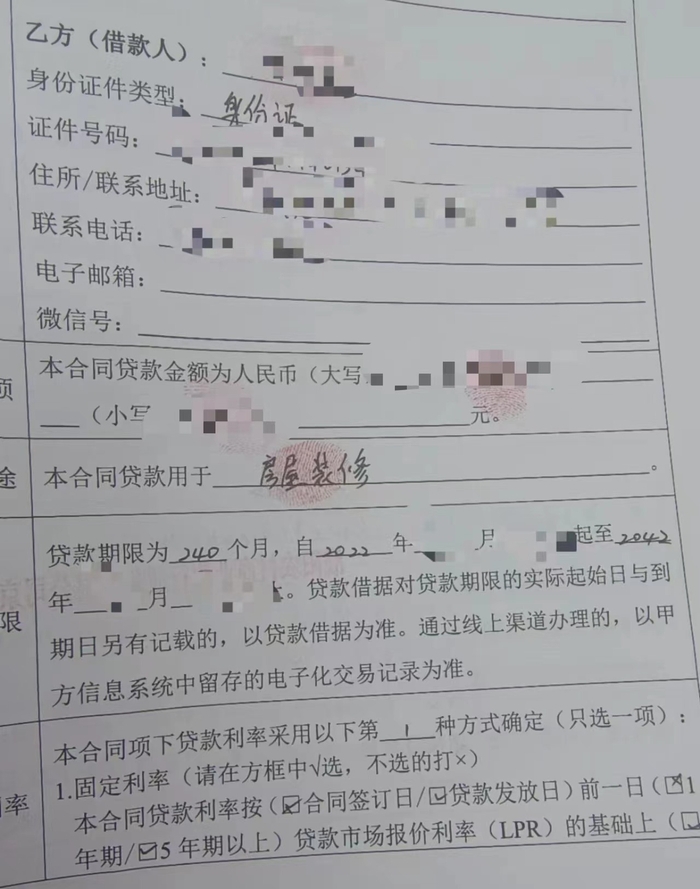 乙方（借款人）：
身份证件类型：身份证
证件号码：
住所/联系地址：
联系电话：
电子邮箱：
微信号：
项
本合同贷款金额为人民币（大写
（小写 元。
途
本合同贷款用于房屋装修。
限
贷款期限为240个月，自2022年 月 起至2042
年 月 。贷款借据对贷款期限的实际起始日与到
期日另有记载的，以贷款借据为准。通过线上渠道办理的，以甲
方信息系统中留存的电子化交易记录为准。
利率
本合同项下贷款利率采用以下第1种方式确定（只选一项）：
1.固定利率（请在方框中√选，不选的打×）
本合同贷款利率按（☒合同签订日/☑贷款发放日）前一日（☒1
年期/☑5年期以上）贷款市场报价利率（LPR）的基础上（